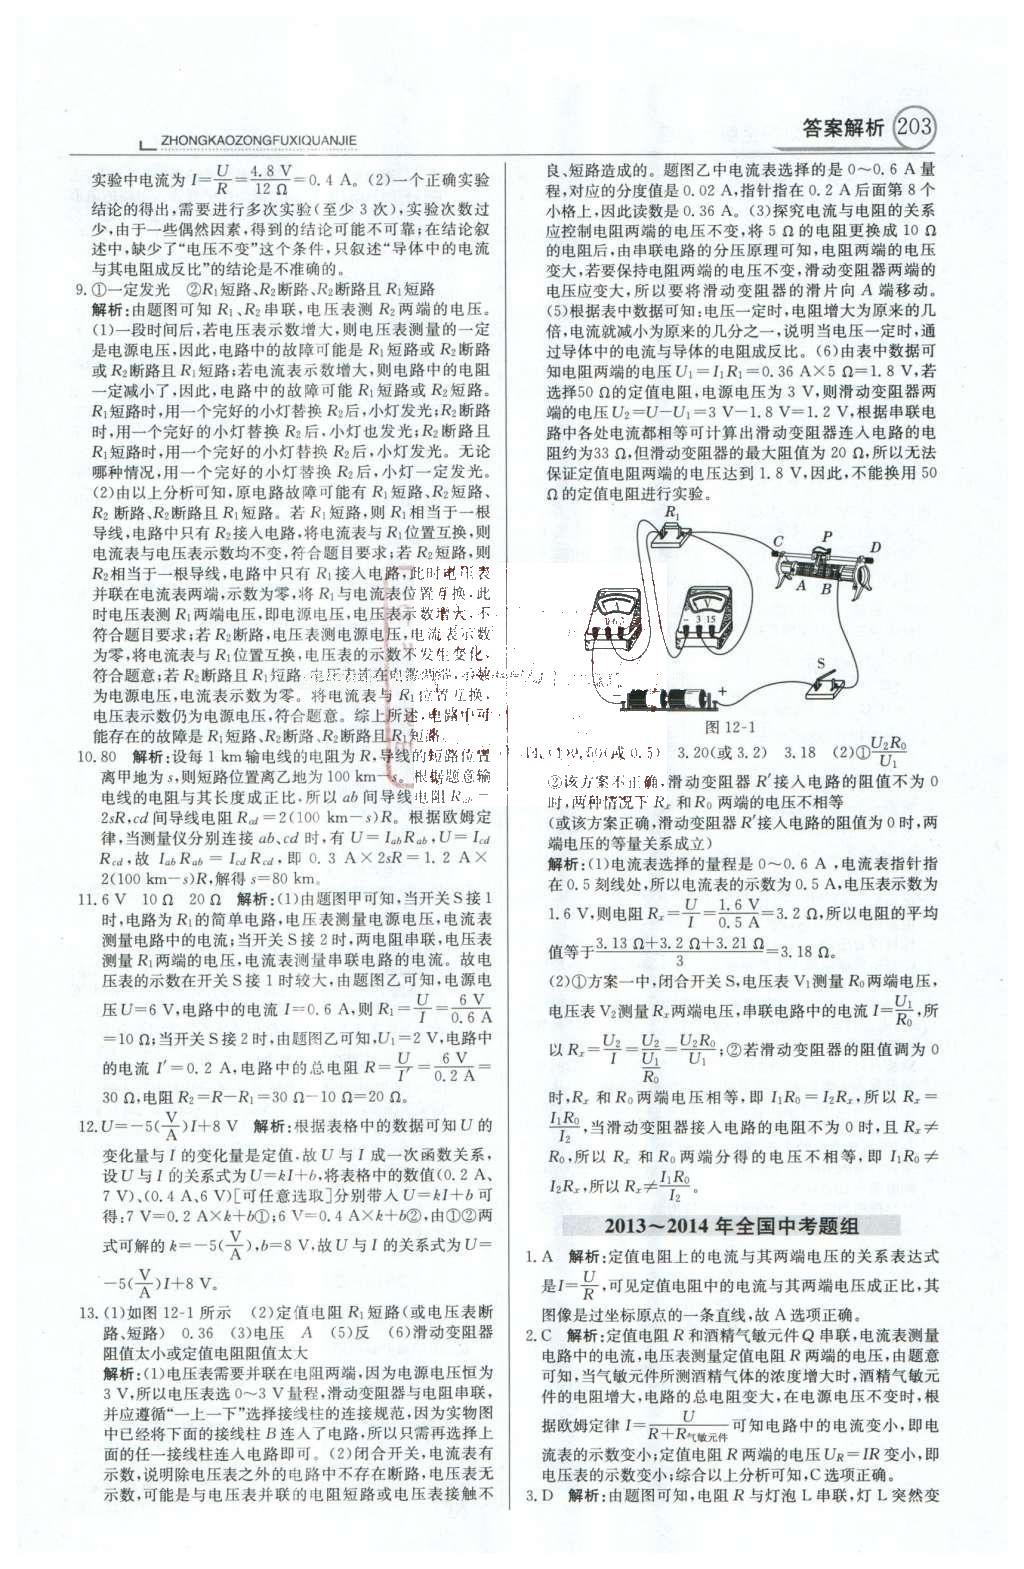 ZHONGKAOZONGFUXIQUANJIE
答案解析 203
实验中电流为 I=U/R=4.8 V/12 Ω=0.4 A。(2)一个正确实验
结论的得出,需要进行多次实验(至少 3 次),实验次数过
少,由于一些偶然因素,得到的结论可能不可靠;在结论叙
述中,缺少了“电压不变”这个条件,只叙述“导体中的电流
与其电阻成反比”的结论是不准确的。
9. ①一定发光 ②R₁短路、R₂断路、R₂断路且 R₁短路
解析:由题图可知 R₁、R₂串联,电压表测 R₂两端的电压。
(1)一段时间后,若电压表示数增大,则电压表测量的一定
是电源电压,因此,电路中的故障可能是 R₁短路或 R₂断路
或 R₂断路且 R₁短路;若电流表示数增大,则电路中的电阻
一定减小了,因此,电路中的故障可能 R₁短路或 R₂短路。
R₁短路时,用一个完好的小灯替换 R₂后,小灯发光;R₂断路
时,用一个完好的小灯替换 R₂后,小灯也发光;R₂断路且
R₁短路时,用一个完好的小灯替换 R₂后,小灯发光。无论
哪种情况,用一个完好的小灯替换 R₂后,小灯一定发光。
(2)由以上分析可知,原电路故障可能有 R₁短路、R₂短路、
R₂ 断路、R₂断路且 R₁短路。若 R₁短路,则 R₁相当于一根
导线,电路中只有 R₂接入电路,将电流表与 R₁位置互换,则
电流表与电压表示数均不变,符合题目要求;若 R₂短路,则
R₂相当于一根导线,电路中只有 R₁接入电路,此时电压表
并联在电流表两端,示数为零,将 R₁与电流表位置互换,此
时电压表测 R₁两端电压,即电源电压,电压表示数增大,不
符合题目要求;若 R₂断路,电压表测电源电压,电流表示数
为零,将电流表与 R₁位置互换,电压表的示数不发生变化,
符合题意;若 R₂断路且 R₁短路,电压表串联在电源两端,示数
为电源电压,电流表示数为零。将电流表与 R₁位置互换,
电压表示数仍为电源电压,符合题意。综上所述,电路中可
能存在的故障是 R₁短路、R₂断路、R₂断路且 R₁短路。
10. 80 解析:设每 1 km 输电线的电阻为 R,导线的短路位置
离甲地为 s,则短路位置离乙地为 100 km-s。根据题意输
电线的电阻与其长度成正比,所以 ab 间导线电阻 Rab=
2sR,cd 间导线电阻 Rcd=2(100 km-s)R。根据欧姆定
律,当测量仪分别连接 ab、cd 时,有 U=IabRab,U=Icd
Rcd,故 IabRab=IcdRcd,即 0.3 A×2sR=1.2 A×
2(100 km-s)R,解得 s=80 km。
11. 6 V 10 Ω 20 Ω 解析:(1)由题图甲可知,当开关 S 接 1
时,电路为 R₁的简单电路,电压表测量电源电压,电流表
测量电路中的电流;当开关 S 接 2 时,两电阻串联,电压表
测量 R₁两端的电压,电流表测量串联电路的电流。故电
压表的示数在开关 S 接 1 时较大,由题图乙可知,电源电
压 U=6 V,电路中的电流 I=0.6 A,则 R₁=U/I=6 V/0.6 A
=10 Ω;当开关 S 接 2 时,由题图乙可知,U₁=2 V,电路中
的电流 I′=0.2 A,电路中的总电阻 R=U/I′=6 V/0.2 A=
30 Ω,电阻 R₂=R-R₁=30 Ω-10 Ω=20 Ω。
12. U=-5(V/A)I+8 V 解析:根据表格中的数据可知 U 的
变化量与 I 的变化量是定值,故 U 与 I 成一次函数关系,
设 U 与 I 的关系式为 U=kI+b,将表格中的数值(0.2 A,
7 V)、(0.4 A,6 V)[可任意选取]分别带入 U=kI+b 可
得:7 V=0.2 A×k+b①;6 V=0.4 A×k+b②,由①②两
式可解的 k=-5(V/A),b=8 V,故 U 与 I 的关系式为 U=
-5(V/A)I+8 V。
13. (1)如图 12-1 所示 (2)定值电阻 R₁短路(或电压表断
路、短路) 0.36 (3)电压 A (5)反 (6)滑动变阻器
阻值太小或定值电阻阻值太大
解析:(1)电压表需要并联在电阻两端,因为电源电压恒为
3 V,所以电压表选 0～3 V 量程,滑动变阻器与电阻串联,
并应遵循“一上一下”选择接线柱的连接规范,因为实物图
中已经将下面的接线柱 B 连入了电路,所以只需再选择上
面的任一接线柱连入电路即可。(2)闭合开关,电流表有
示数,说明除电压表之外的电路中不存在断路,电压表无
示数,可能是与电压表并联的电阻短路或电压表接触不
良、短路造成的。题图乙中电流表选择的是 0～0.6 A 量
程,对应的分度值是 0.02 A,指针指在 0.2 A 后面第 8 个
小格上,因此读数是 0.36 A。(3)探究电流与电阻的关系
应控制电阻两端的电压不变,将 5 Ω 的电阻更换成 10 Ω
的电阻后,由串联电路的分压原理可知,电阻两端的电压
变大,若要保持电阻两端的电压不变,滑动变阻器两端的
电压应变大,所以要将滑动变阻器的滑片向 A 端移动。
(5)根据表中数据可知:电压一定时,电阻增大为原来的几
倍,电流就减小为原来的几分之一,说明当电压一定时,通
过导体中的电流与导体的电阻成反比。(6)由表中数据可
知电阻两端的电压 U₁=I₁R₁=0.36 A×5 Ω=1.8 V,若
选择50 Ω的定值电阻,电源电压为 3 V,则滑动变阻器两
端的电压 U₂=U-U₁=3 V-1.8 V=1.2 V,根据串联电
路中各处电流都相等可计算出滑动变阻器连入电路的电
阻约为33 Ω,但滑动变阻器的最大阻值为 20 Ω,所以无法
保证定值电阻两端的电压达到 1.8 V,因此,不能换用 50
Ω 的定值电阻进行实验。
R₁
C P D
A B
A
V
- 3 15
S
- +
图 12-1
0.50(或 0.5) 3.20(或 3.2) 3.18 (2)①U₂R₀/U₁
②该方案不正确,滑动变阻器 R′接入电路的阻值不为 0
时,两种情况下 Rₓ 和 R₀ 两端的电压不相等
(或该方案正确,滑动变阻器 R′接入电路的阻值为 0 时,两
端电压的等量关系成立)
解析:(1)电流表选择的量程是 0～0.6 A ,电流表指针指
在 0.5 刻线处,所以电流表的示数为 0.5 A,电压表示数为
1.6 V,则电阻 Rₓ=U/I=1.6 V/0.5 A=3.2 Ω,所以电阻的平均
值等于(3.13 Ω+3.2 Ω+3.21 Ω)/3=3.18 Ω。
(2)①方案一中,闭合开关 S,电压表 V₁测量 R₀两端电压,
电压表 V₂测量 Rₓ两端电压,串联电路中的电流 I=U₁/R₀,所
以 Rₓ=U₂/I=U₂/(U₁/R₀)=U₂R₀/U₁;②若滑动变阻器的阻值调为 0
时,Rₓ 和 R₀两端电压相等,即 I₁R₀=I₂Rₓ,所以 Rₓ=
I₁R₀/I₂,当滑动变阻器接入电路的电阻不为 0 时,且 Rₓ≠
R₀,所以 Rₓ 和 R₀两端分得的电压不相等,即 I₁R₀≠
I₂Rₓ,所以 Rₓ≠I₁R₀/I₂。
2013～2014 年全国中考题组
1. A 解析:定值电阻上的电流与其两端电压的关系表达式
是I=U/R,可见定值电阻中的电流与其两端电压成正比,其
图像是过坐标原点的一条直线,故 A 选项正确。
2. C 解析:定值电阻 R 和酒精气敏元件 Q 串联,电流表测量
电路中的电流,电压表测量定值电阻 R 两端的电压,由题意
可知,当气敏元件所测酒精气体的浓度增大时,酒精气敏元
件的电阻增大,电路的总电阻变大,在电源电压不变时,根
据欧姆定律 I=U/(R+R气敏元件)可知电路中的电流变小,即电
流表的示数变小;定值电阻 R 两端的电压 UR=IR 变小,即
电压表的示数变小;综合以上分析可知,C 选项正确。
3. D 解析:由题图可知,电阻 R 与灯泡 L 串联,灯 L 突然变